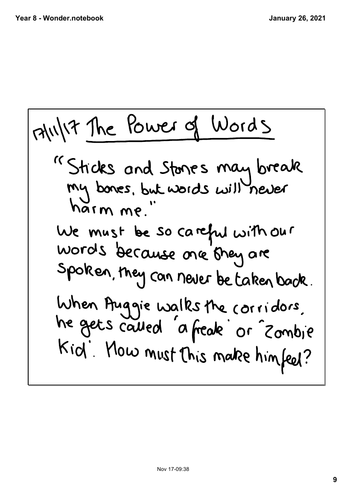 Year 8 - Wonder.notebook
January 26, 2021
17/11/17 The Power of Words
"Sticks and Stones may break
my bones, but words will never
harm me."
We must be so careful with our
words because once they are
Spoken, they can never be taken back.
When Auggie walks the corridors,
he gets called 'a freak' or 'Zombie
Kid'. How must this make him feel?
Nov 17-09:38
9